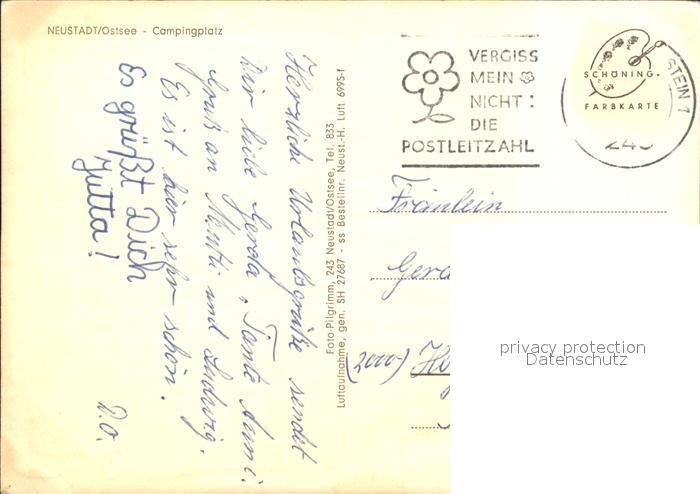 NEUSTADT/Ostsee - Campingplatz
Herzliche Urlaubsgrüße sendet
Dir liebe Gerda, Tante Anni.
Gruß an Mutti und Ludwig.
Es ist hier sehr schön.
Es grüßt Dich
Jutta!
D.O.
Foto-Pilgrimm, 243 Neustadt/Ostsee, Tel. 833
Luftaufnahme, gen. SH 27687 - ss Bestellnr. Neust.-H. Luft 6995-f
VERGISS
MEIN
NICHT:
DIE
POSTLEITZAHL
SCHÖNING
FARBKARTE
STEIN 1
243
Fräulein
Gerd
(2000)
privacy protection
Datenschutz